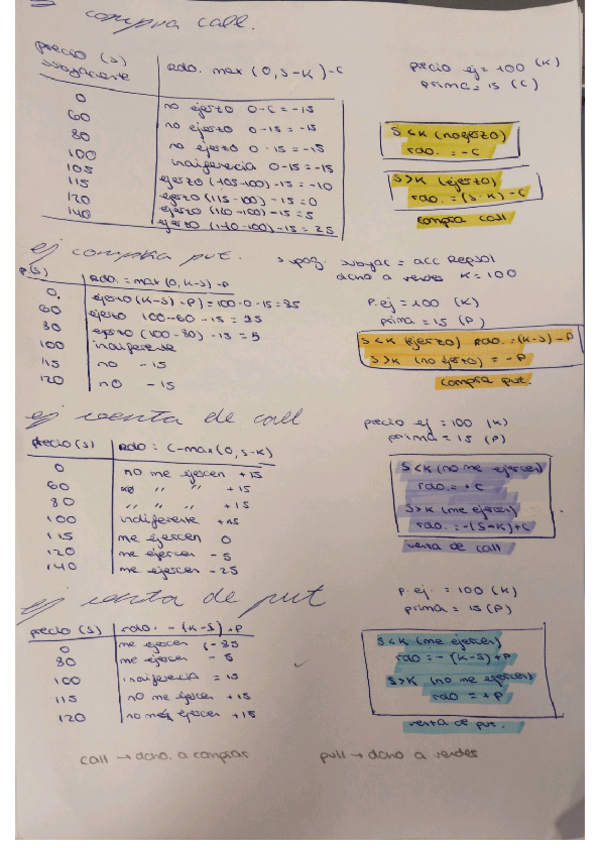 ej compra call.
precio (S) subyacente | rdo. max (0, S-K) - C
precio ej = 100 (K)
prima = 15 (C)
0 no ejerzo 0-C = -15
60 no ejerzo 0-15 = -15
80 no ejerzo 0-15 = -15
100 indiferencia 0-15 = -15
105 ejerzo (105-100)-15 = -10
115 ejerzo (115-100)-15 = 0
120 ejerzo (120-100)-15 = 5
140 ejerzo (140-100)-15 = 25
S<K (no ejerzo)
rdo. = -C
S>K (ejerzo)
rdo. = (S-K) - C
compra call
ej compra put.
supog. subyac = acc Repsol
dcho a vender K = 100
p(S) | rdo. = max (0, K-S) - P
0. ejerzo (K-S) - P) = 100-0-15 = 85
60 ejerzo 100-60-15 = 25
80 ejerzo (100-80) -15 = 5
100 indiferente
115 no -15
120 no -15
P. ej = 100 (K)
prima = 15 (P)
S<K (ejerzo) rdo. = (K-S) - P
S>K (no ejerzo) = -P
compra put.
ej venta de call
precio ej = 100 (K)
prima = 15 (P)
precio (S) | rdo : C-max (0, S-K)
0 no me ejercen +15
60 no " " +15
80 " " " +15
100 indiferente +15
115 me ejercen 0
120 me ejercen -5
140 me ejercen -25
S<K (no me ejercen)
rdo. = +C
S>K (me ejercen)
rdo. = -(S-K)+C
venta de call
ej venta de put
p. ej. = 100 (K)
prima = 15 (P)
precio (S) | rdo. - (K-S) + P
0 me ejercen (-85
80 me ejercen -5
100 indiferencia = 15
115 no me ejercen +15
120 no me ejercen +15
S<K (me ejercen)
rdo = - (K-S) + P
S>K (no me ejercen)
rdo = +P
venta de put.
call → dcho. a comprar
pull → dcho a vender